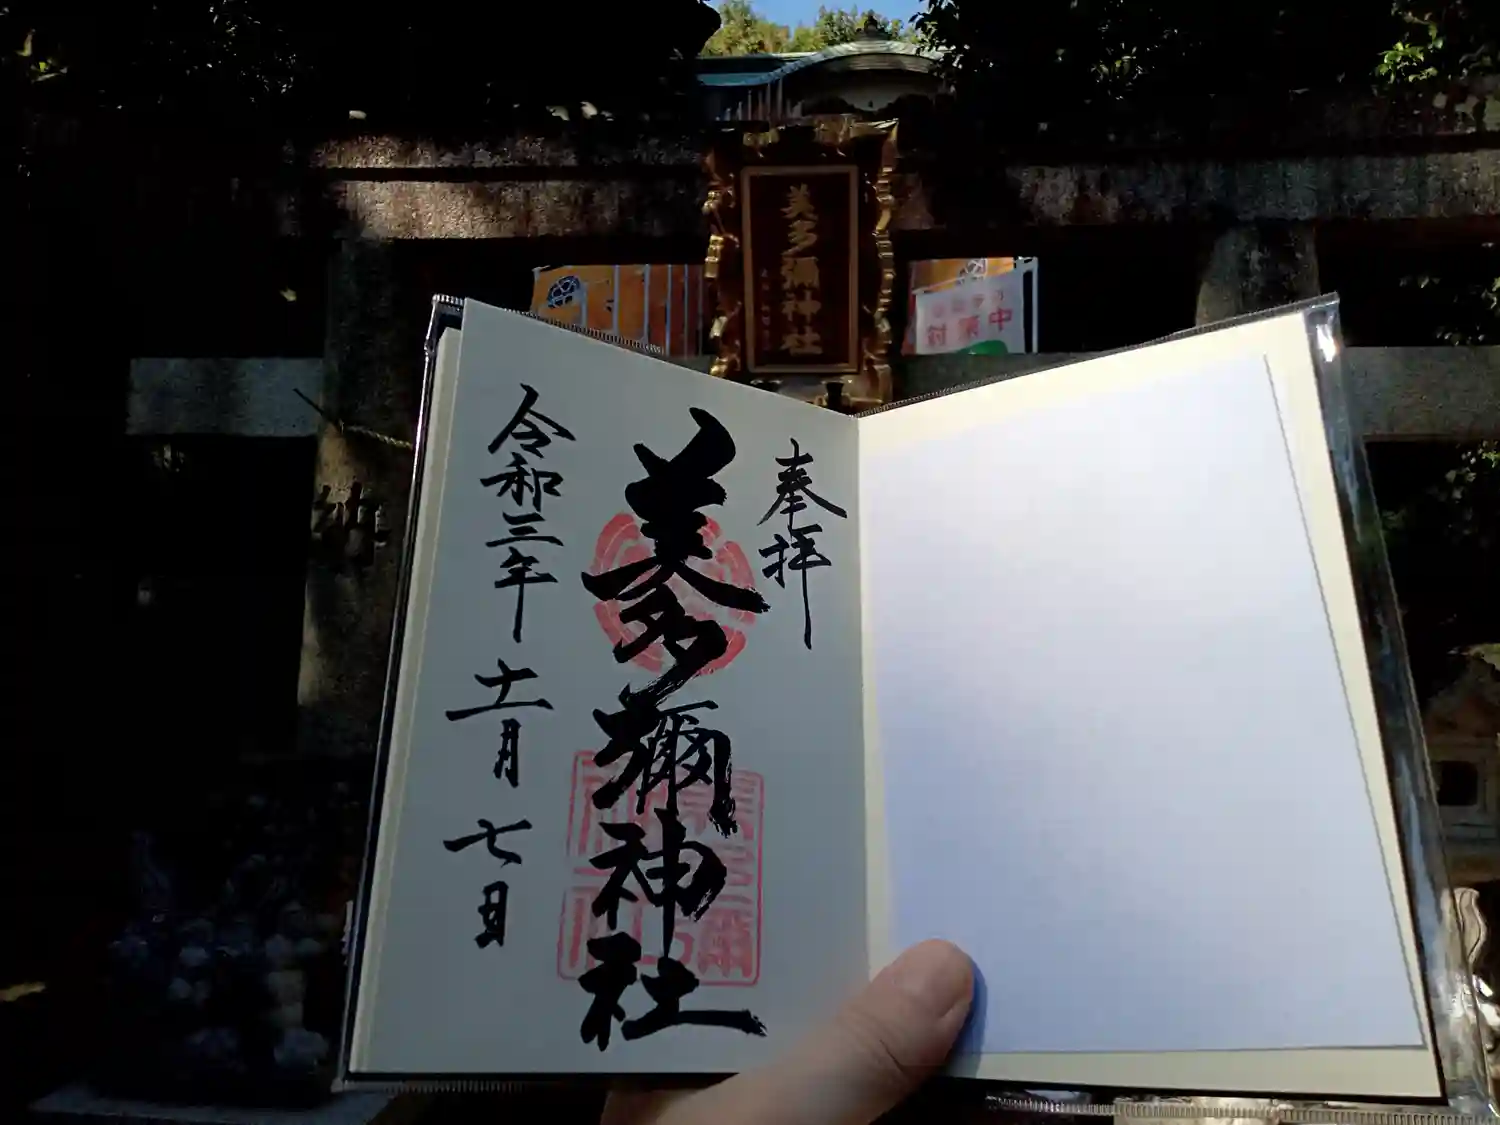 美多彌神社
対策中
奉拝
美多彌神社
令和三年十一月七日